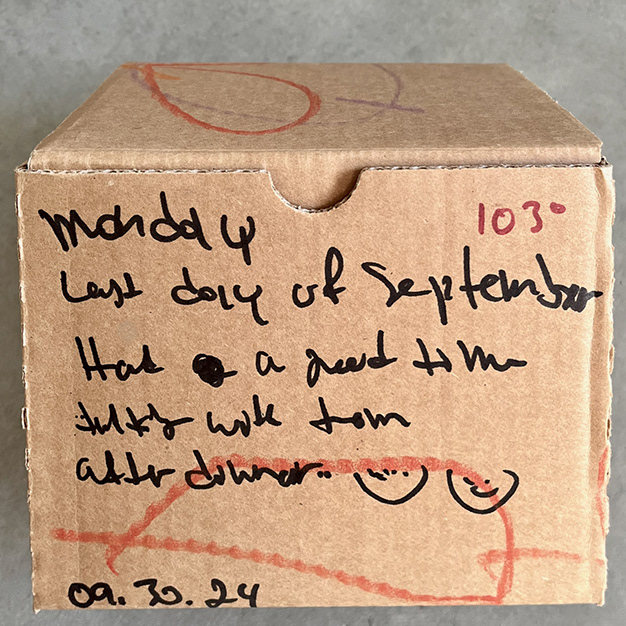 Monday
103°
Last day of September
Had a good time
talking with tom
after dinner..
09.30.24